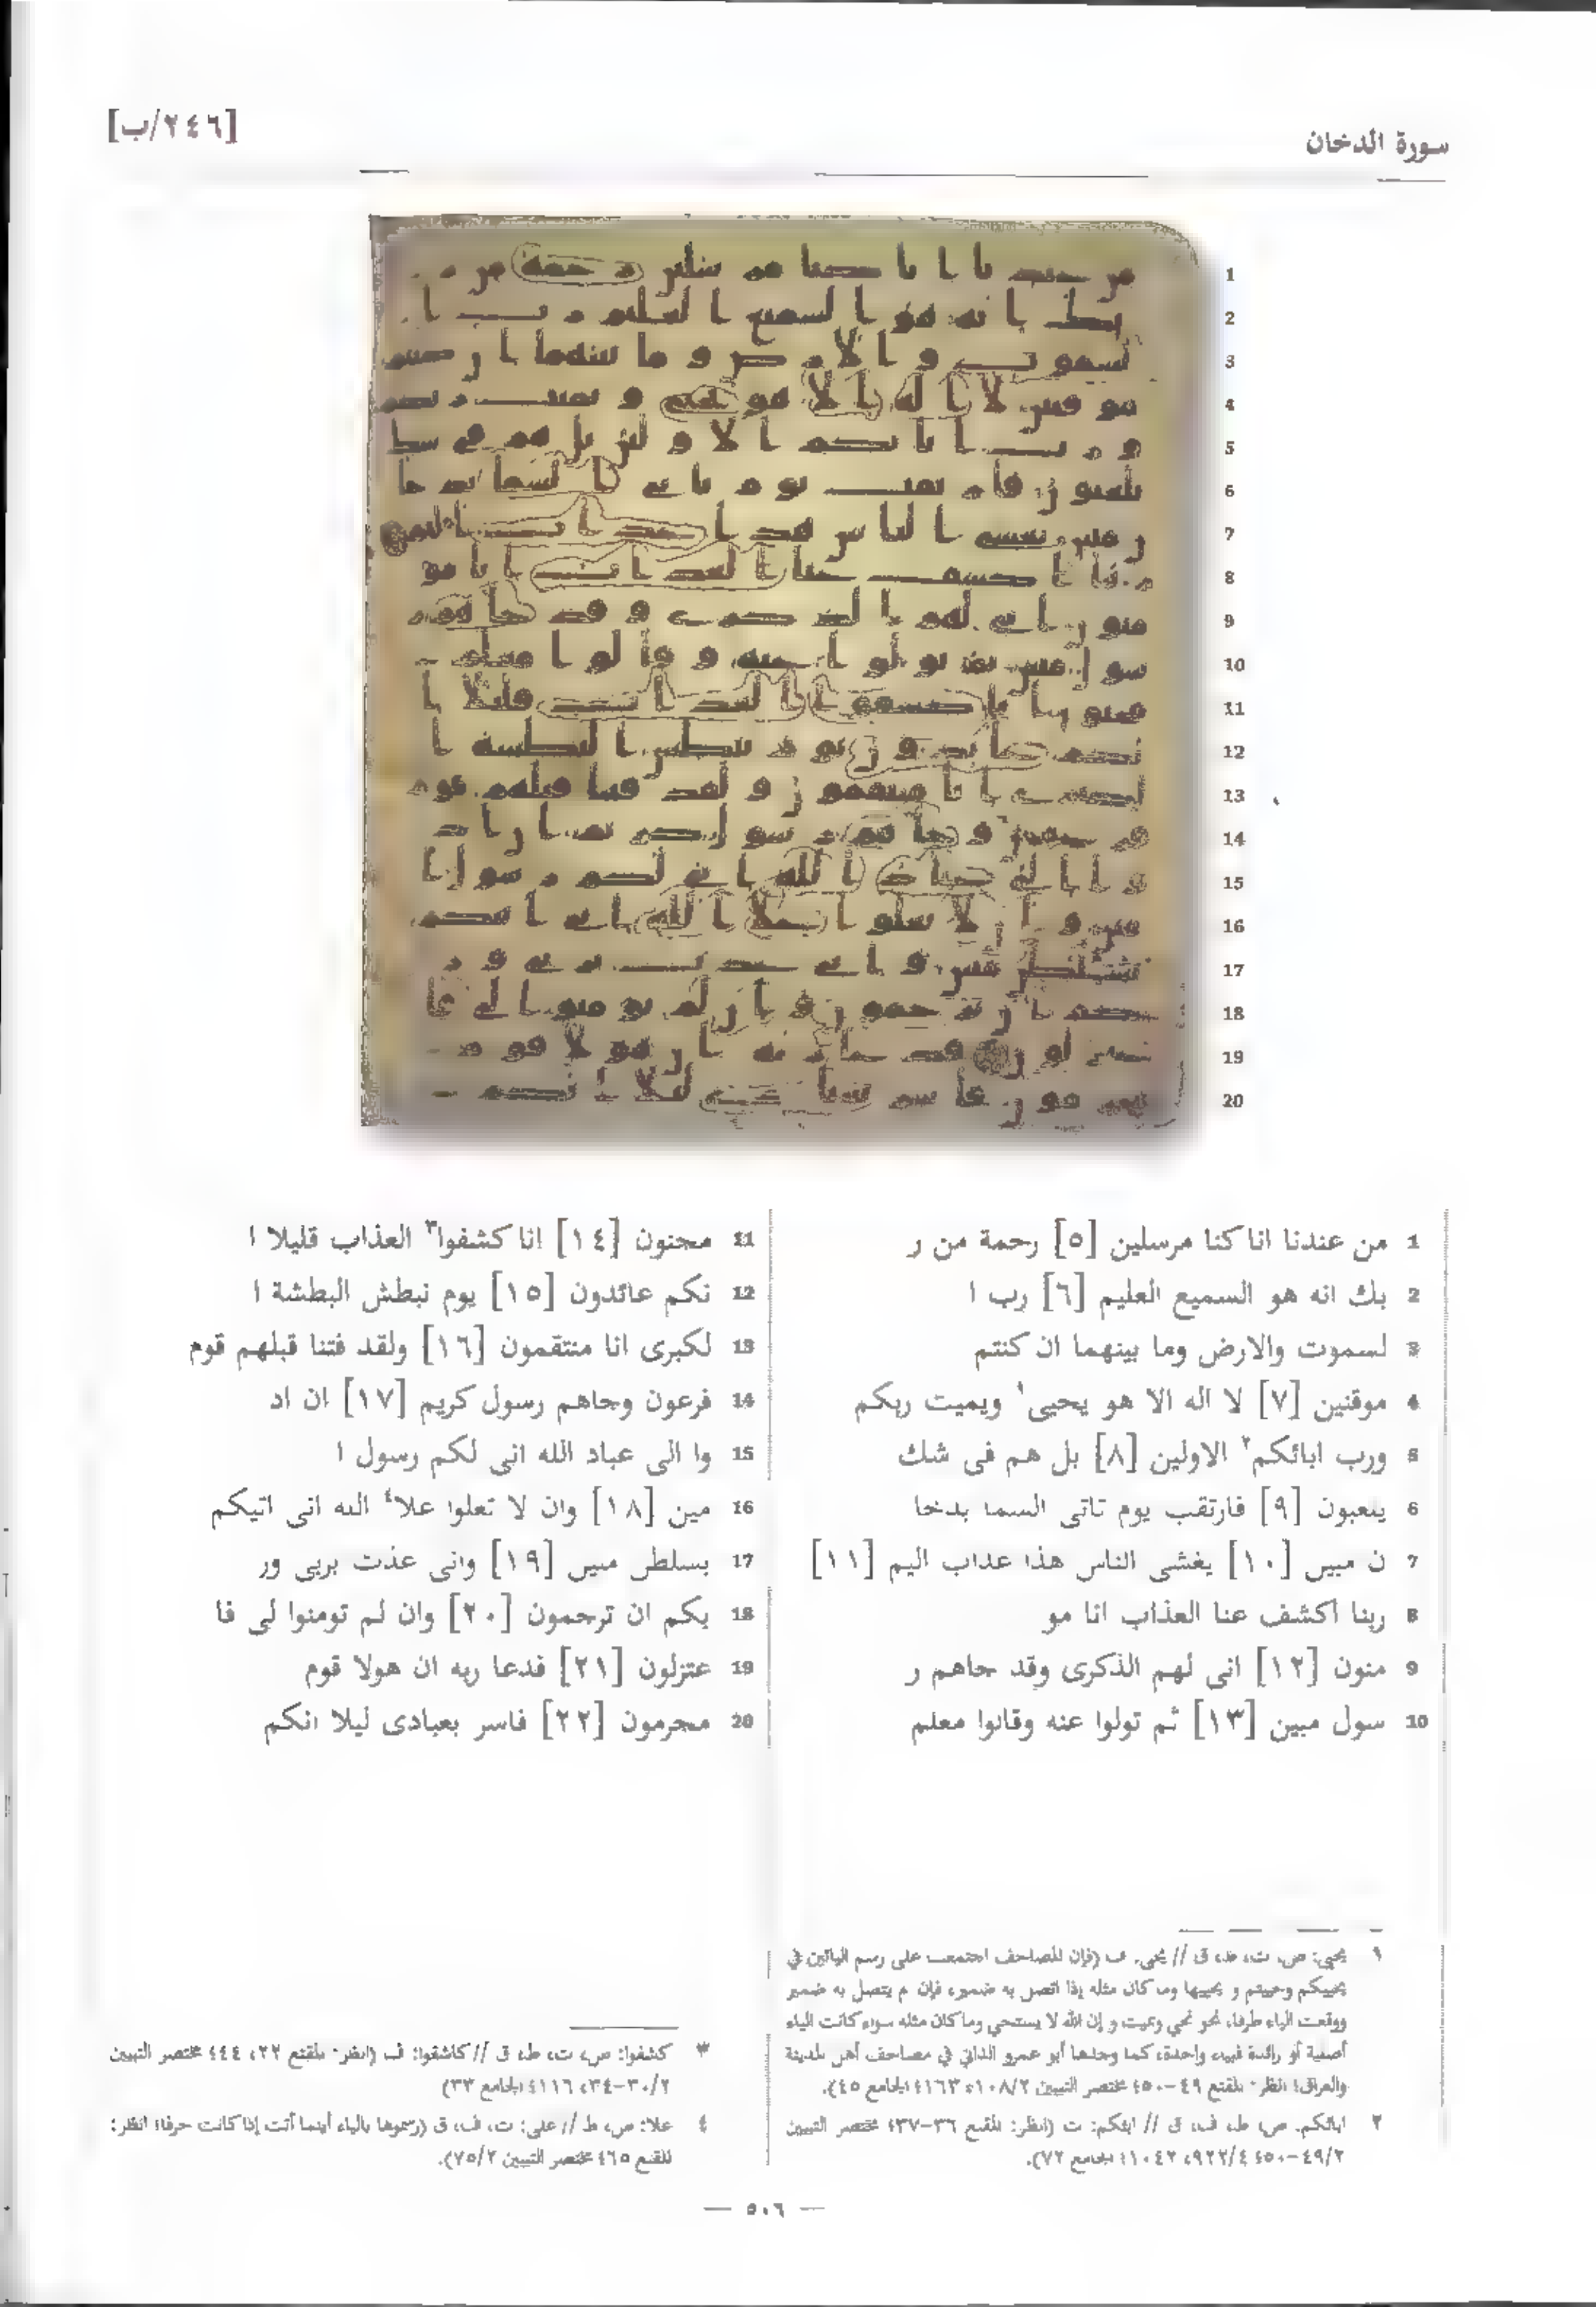 سورة الدخان
[٢٤٦/ب]
1 من عندنا انا كنا مرسلين [٥] رحمة من ر
2 بك انه هو السميع العليم [٦] رب ا
3 لسموت والارض وما بينهما ان كنتم
4 موقنين [٧] لا اله الا هو يحيى١ ويميت ربكم
5 ورب ابائكم٢ الاولين [٨] بل هم فى شك
6 يلعبون [٩] فارتقب يوم تاتى السما بدخا
7 ن مبين [١٠] يغشى الناس هذا عذاب اليم [١١]
8 ربنا اكشف عنا العذاب انا مو
9 منون [١٢] انى لهم الذكرى وقد جاهم ر
10 سول مبين [١٣] ثم تولوا عنه وقالوا معلم
11 مجنون [١٤] انا كشفوا٣ العذاب قليلا ا
12 نكم عائدون [١٥] يوم نبطش البطشة ا
13 لكبرى انا منتقمون [١٦] ولقد فتنا قبلهم قوم
14 فرعون وجاهم رسول كريم [١٧] ان اد
15 وا الى عباد الله انى لكم رسول ا
16 مين [١٨] وان لا تعلوا علا٤ الله انى اتيكم
17 بسلطن مبين [١٩] وانى عذت بربى ور
18 بكم ان ترجمون [٢٠] وان لم تومنوا لى فا
19 عتزلون [٢١] فدعا ربه ان هولا قوم
20 مجرمون [٢٢] فاسر بعبادى ليلا انكم
١ يحيي: ص، ت، ط، ق // يحي: ف (فإن المصاحف اجتمعت على رسم اليائين في
يحييكم وحييتم و يحييها وما كان مثله إذا اتصل به ضمير، فإن لم يتصل به ضمير
ووقعت الياء طرفا، نحو نحي ونميت و إن الله لا يستحي وما كان مثله سواء كانت الياء
أصلية أو زائدة فبياء واحدة، كما وجدها أبو عمرو الداني في مصاحف أهل المدينة
والعراق؛ انظر: المقنع ٤٩-٥٠؛ مختصر التبيين ١٠٨/٢، ١٦٣؛ الجامع ٤٥).
٢ ابائكم: ص، ط، ف، ق // ابئكم: ت (انظر: المقنع ٣٦-٣٧؛ مختصر التبيين
٤٩/٢-٥٠؛ ٩٢٢/٤، ١٠٤٢؛ الجامع ٧٢).
٣ كشفوا: ص، ت، ط، ق // كاشفوا: ف (انظر: المقنع ٢٢، ٤٤؛ مختصر التبيين
٣٠/٢-٣٤، ١١٦؛ الجامع ٣٣)
٤ علا: ص، ط // على: ت، ف، ق (رسموها بالياء أينما أتت إذا كانت حرفا؛ انظر:
المقنع ٦٥؛ مختصر التبيين ٧٥/٢).
— ٥٠٦ —